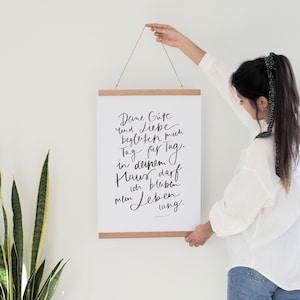 Deine Güte
und Liebe
begleiten mich
Tag für Tag.
in deinem
Haus darf
ich bleiben
mein Leben
lang.